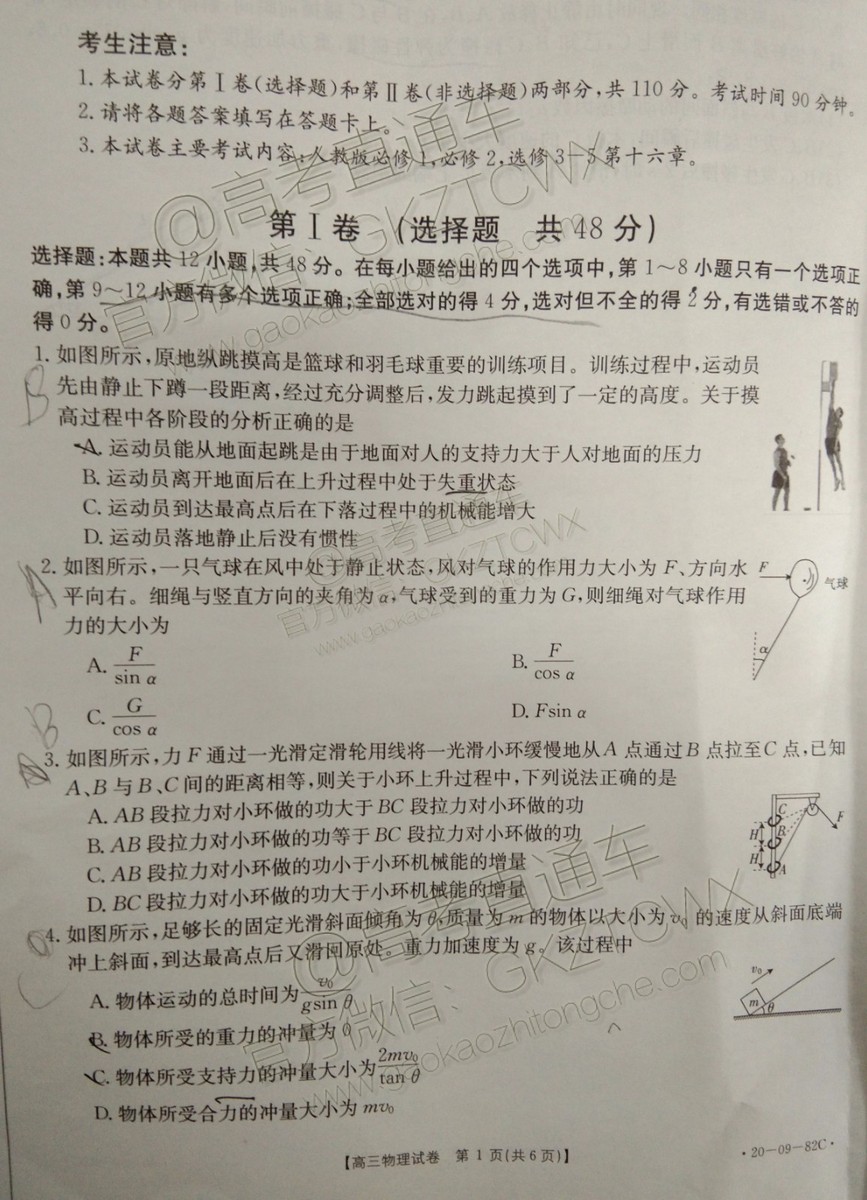 考生注意:
1. 本试卷分第Ⅰ卷(选择题)和第Ⅱ卷(非选择题)两部分,共110分。考试时间90分钟。
2. 请将各题答案填写在答题卡上。
3. 本试卷主要考试内容:人教版必修1,必修2,选修3-5第十六章。
第Ⅰ卷 (选择题 共48分)
选择题:本题共12小题,共48分。在每小题给出的四个选项中,第1~8小题只有一个选项正
确,第9~12小题有多个选项正确;全部选对的得4分,选对但不全的得2分,有选错或不答的
得0分。
B
1. 如图所示,原地纵跳摸高是篮球和羽毛球重要的训练项目。训练过程中,运动员
先由静止下蹲一段距离,经过充分调整后,发力跳起摸到了一定的高度。关于摸
高过程中各阶段的分析正确的是
A. 运动员能从地面起跳是由于地面对人的支持力大于人对地面的压力
B. 运动员离开地面后在上升过程中处于失重状态
C. 运动员到达最高点后在下落过程中的机械能增大
D. 运动员落地静止后没有惯性
A
2. 如图所示,一只气球在风中处于静止状态,风对气球的作用力大小为F、方向水
平向右。细绳与竖直方向的夹角为α,气球受到的重力为G,则细绳对气球作用
力的大小为
F
气球
α
A. F/sin α
B. F/cos α
C. G/cos α
D. Fsin α
B
3. 如图所示,力F通过一光滑定滑轮用线将一光滑小环缓慢地从A点通过B点拉至C点,已知
A、B与B、C间的距离相等,则关于小环上升过程中,下列说法正确的是
A. AB段拉力对小环做的功大于BC段拉力对小环做的功
B. AB段拉力对小环做的功等于BC段拉力对小环做的功
C. AB段拉力对小环做的功小于小环机械能的增量
D. BC段拉力对小环做的功大于小环机械能的增量
C
B
A
H
H
F
4. 如图所示,足够长的固定光滑斜面倾角为θ,质量为m的物体以大小为v₀的速度从斜面底端
冲上斜面,到达最高点后又滑回原处。重力加速度为g。该过程中
C
A. 物体运动的总时间为v₀/gsin θ
B. 物体所受的重力的冲量为0
C. 物体所受支持力的冲量大小为2mv₀/tan θ
D. 物体所受合力的冲量大小为mv₀
v₀
m
θ
【高三物理试卷 第1页(共6页)】
·20-09-82C·
@高考直通车
官方微信:GKZTCWX
www.gaokaozhitongche.com
@高考直通车
官方微信:GKZTCWX
www.gaokaozhitongche.com
@高考直通车
官方微信:GKZTCWX
www.gaokaozhitongche.com